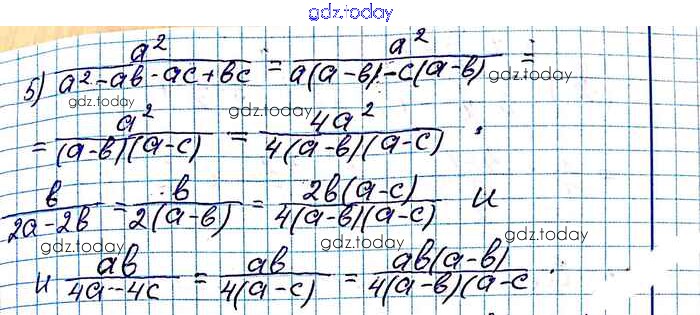 gdz.today
5) a²/(a²-ab-ac+bc) = a²/(a(a-b)-c(a-b)) =
gdz.today gdz.today gdz.today
= a²/((a-b)(a-c)) = 4a²/(4(a-b)(a-c)) ;
gdz.today gdz.today
b/(2a-2b) = b/(2(a-b)) = 2b(a-c)/(4(a-b)(a-c)) и
gdz.today gdz.today gdz.today
и ab/(4a-4c) = ab/(4(a-c)) = ab(a-b)/(4(a-b)(a-c .
gdz.today gdz.today